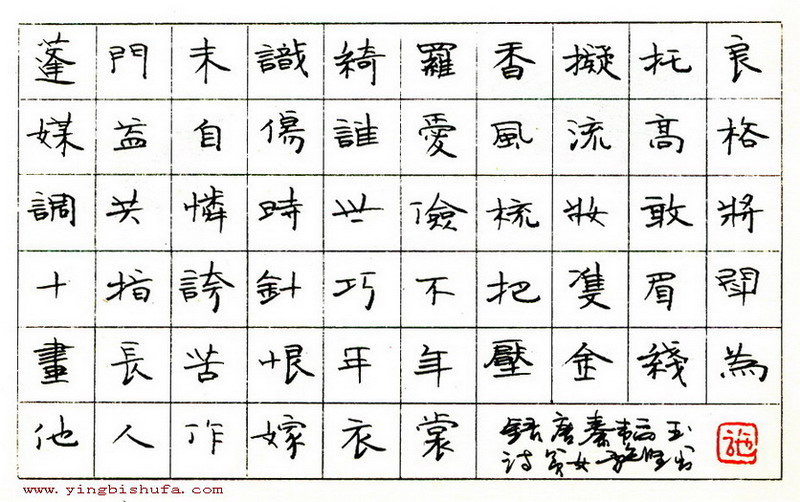 蓬門未識綺羅香擬托良
媒益自傷誰愛風流高格
調共憐時世儉梳妝敢將
十指誇針巧不把隻眉鬥
畫長苦恨年年壓金綫為
他人作嫁衣裳
錄唐秦韜玉
詩貧女
施
www.yingbishufa.com